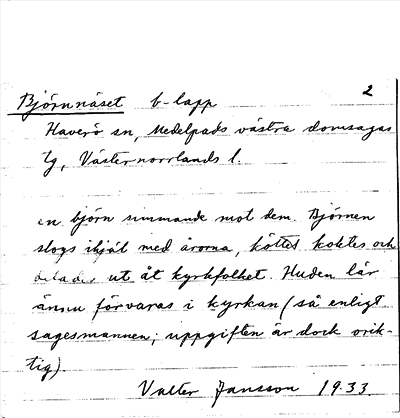 2
Björnnäset b-lapp
Haverö sn, Medelpads västra domsagas
tg, Västernorrlands l.
en björn simmande mot dem. Björnen
slogs ihjäl med årorna, köttet koktes och
delades ut åt kyrkfolket. Huden lär
ännu förvaras i kyrkan (så enligt
sagesmannen; uppgiften är dock orik-
tig).
Valter Jansson 1933.